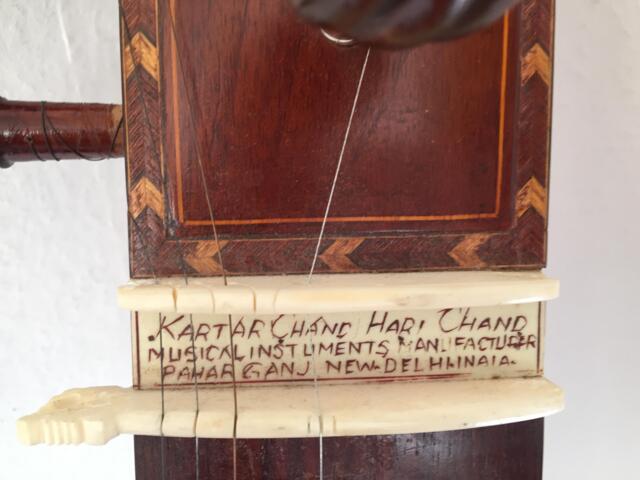 KARTAR CHAND HARI CHAND
MUSICAL INSTUMENTS MANUFACTURER
PAHAR GANJ NEW-DELHI-INDIA.